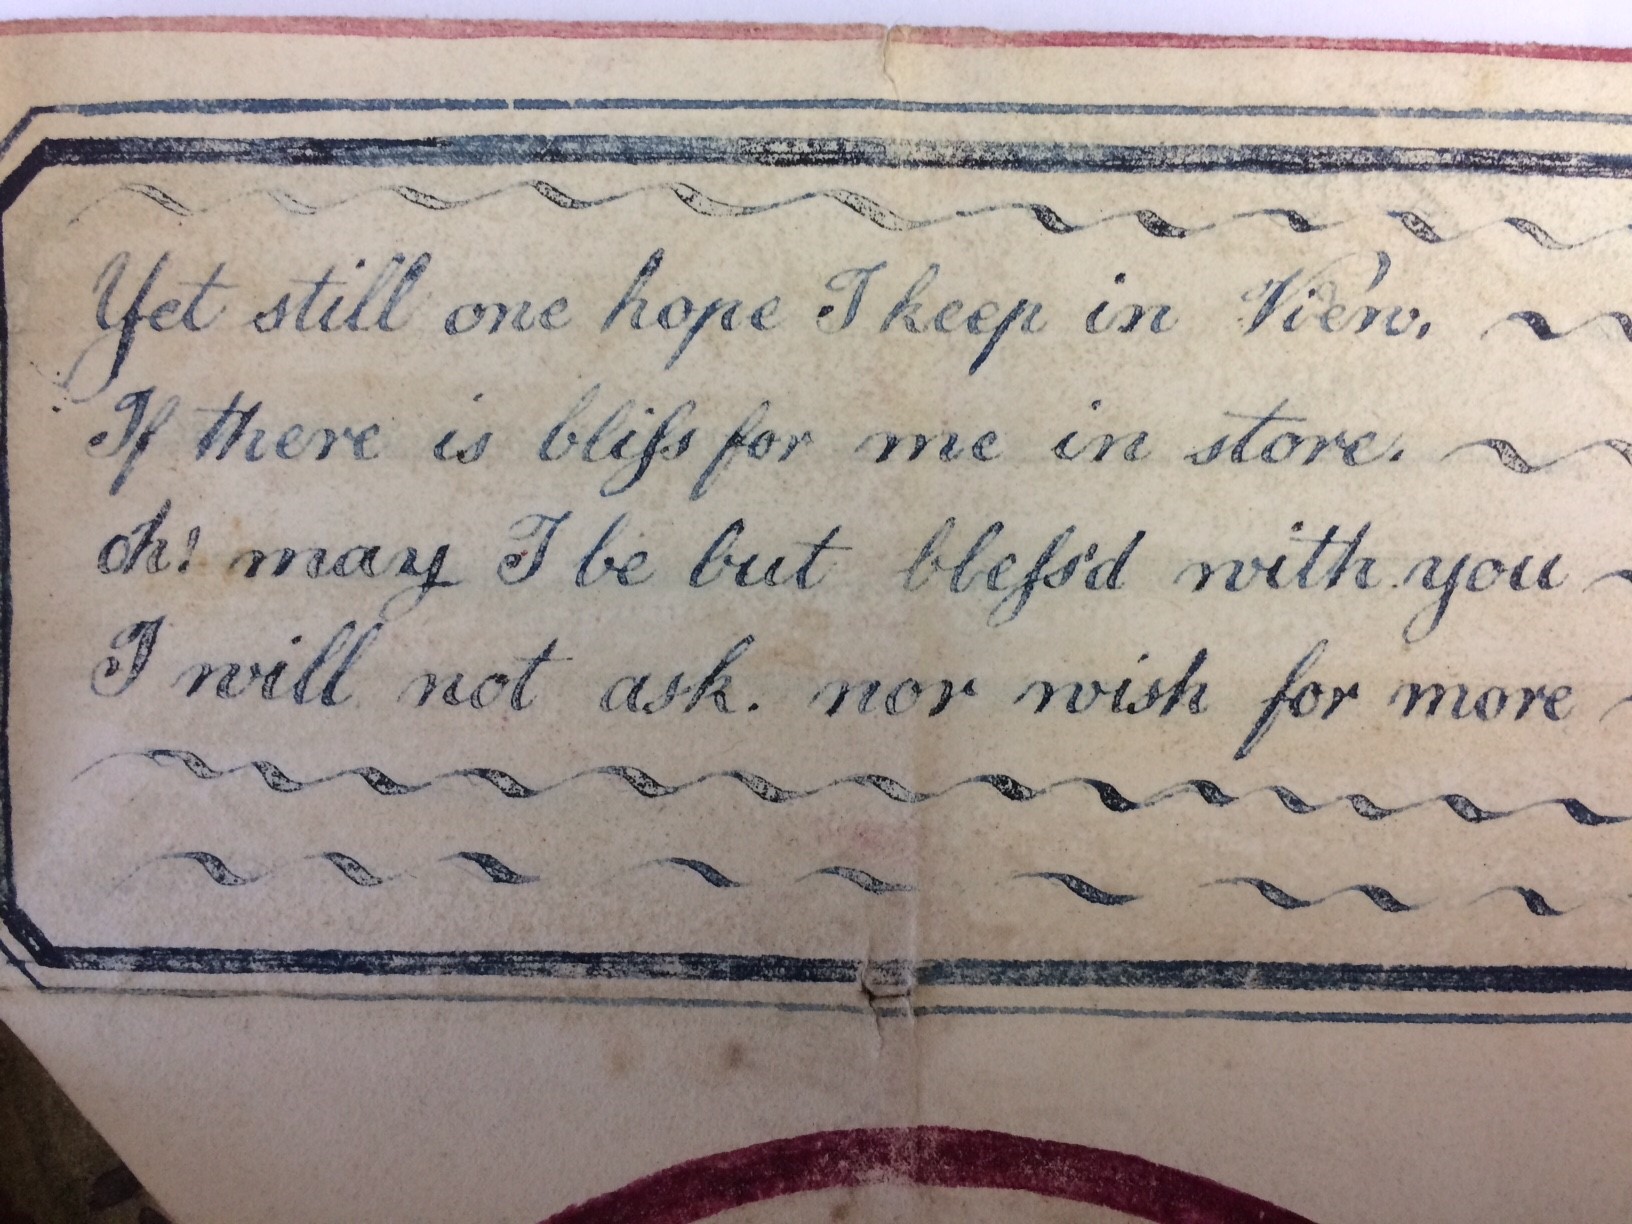 Yet still one hope I keep in Vie'w,
If there is bliſs for me in store.
oh! may I be but bleſs'd with you
I will not ask. nor wish for more